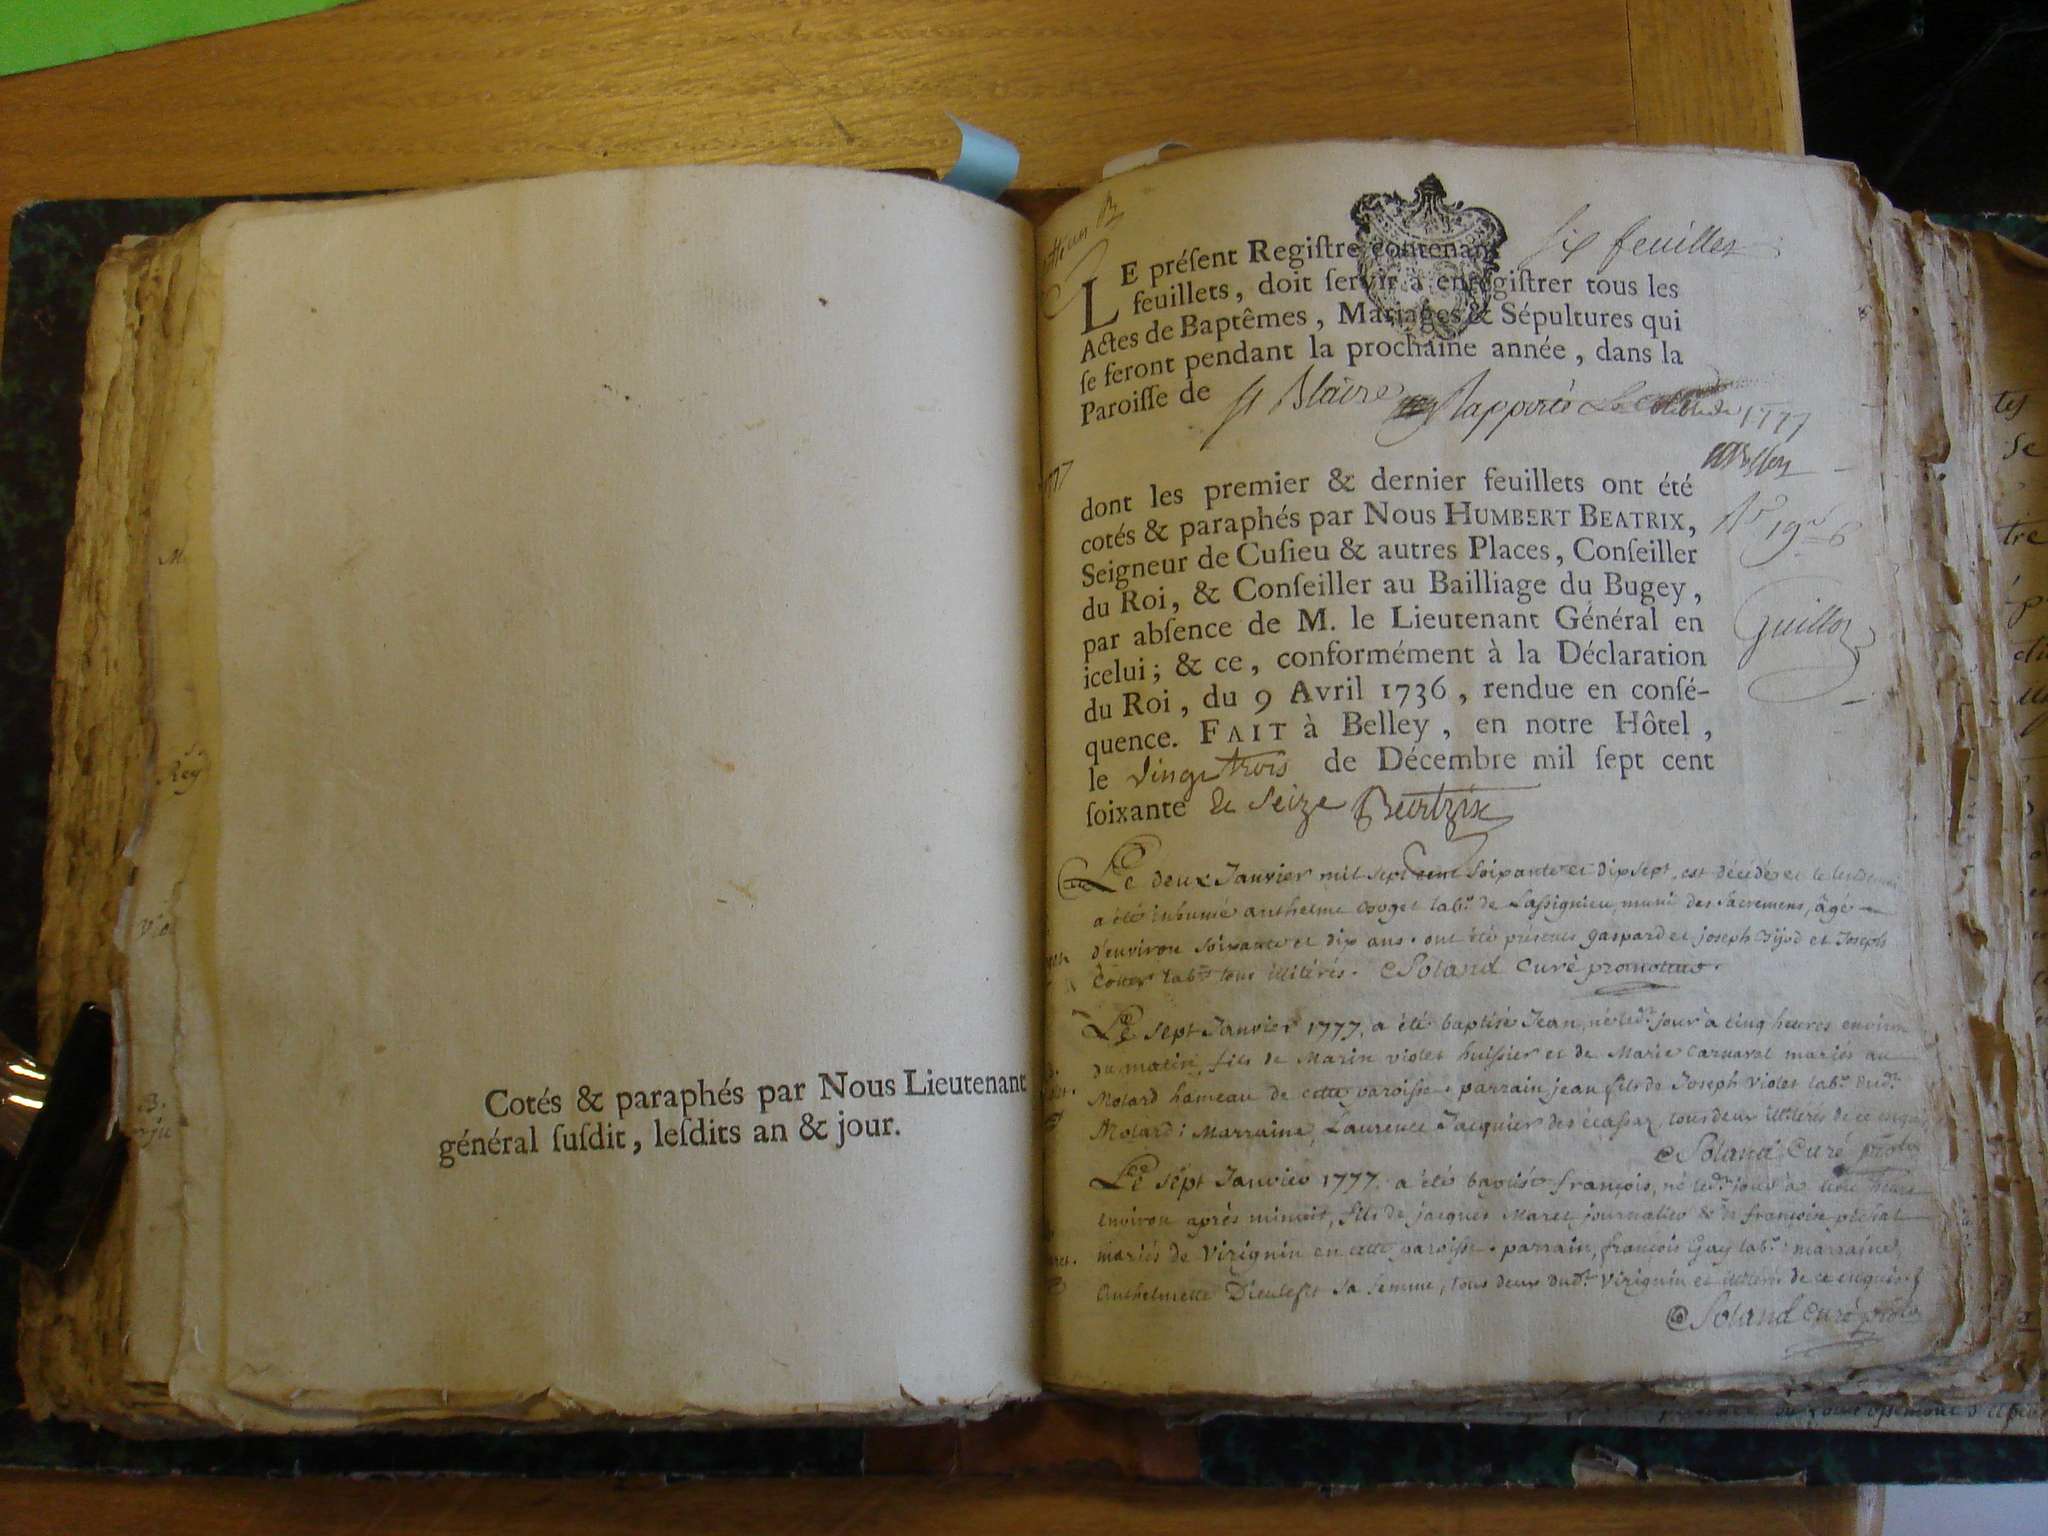 Cotés & paraphés par Nous Lieutenant
général ſuſdit, leſdits an & jour.
LE préſent Regiſtre contenant six feuilles
feuillets, doit ſervir à enregiſtrer tous les
Actes de Baptêmes, Mariages & Sépultures qui
ſe feront pendant la prochaine année, dans la
Paroiſſe de st Blaise 1777
dont les premier & dernier feuillets ont été
cotés & paraphés par Nous HUMBERT BEATRIX,
Seigneur de Cuſieu & autres Places, Conſeiller
du Roi, & Conſeiller au Bailliage du Bugey,
par abſence de M. le Lieutenant Général en
icelui; & ce, conformément à la Déclaration
du Roi, du 9 Avril 1736, rendue en conſé-
quence. FAIT à Belley, en notre Hôtel,
le vingt trois de Décembre mil ſept cent
ſoixante & seize Beatrix
Guillon
Le deux Janvier mil sept cent soixante et dix sept, est décédé et le lendemain
a été inhumé anthelme labr. de Lassignieu, muni des sacremens, âgé
d'environ soixante et dix ans. ont été présents gaspard et joseph Bijod et Joseph
labrs tous illitérés. Soland Curé
Le sept Janvier 1777, a été baptisé Jean, né led. jour à cinq heures environ
du matin, fils de Marin violet huissier et de Marie Carnaval mariés au
Molard hameau de cette paroisse. parrain jean fils de Joseph Violet labr. dud.
Molard: Marraine, Laurence Jacquier des écassaz, tous deux illitérés de ce enquis,
Soland Curé
Le sept Janvier 1777. a été baptisé françois, né led. jour à une heure
environ après minuit, fils de jacques Maret journalier & de françoise
mariés de Virignin en cette paroisse. parrain, françois Guy labr: marraine,
Anthelmette Dieulefit sa femme, tous deux dud. Virignin et illitérés de ce enquis.
Soland Curé